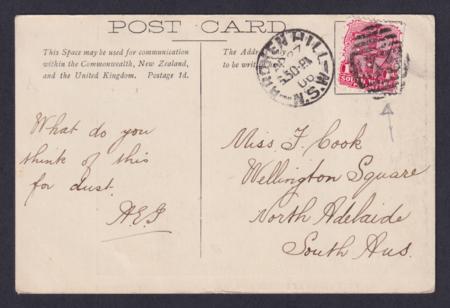 POST CARD
This Space may be used for communication
within the Commonwealth, New Zealand,
and the United Kingdom. Postage 1d.
The
to be
BROKEN HILL
N.S.W
What do you
think of this
for dust.
Miss F. Cook
Wellington Square
North Adelaide
South Aus.